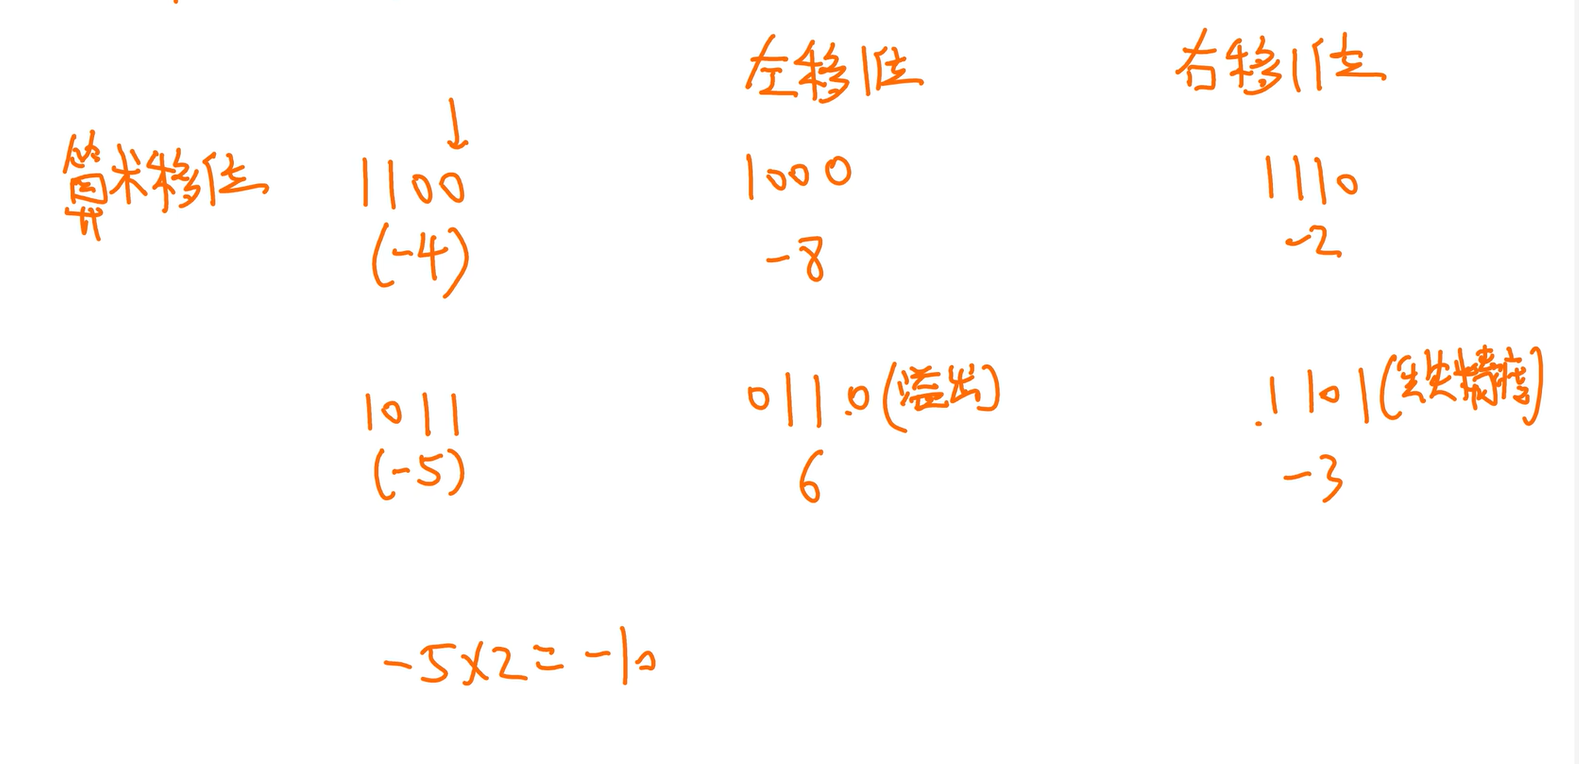 左移1位 右移1位
算术移位 1100 1000 1110
(-4) -8 -2
1011 0110(溢出) 1101(丢失精度)
(-5) 6 -3
-5×2=-10